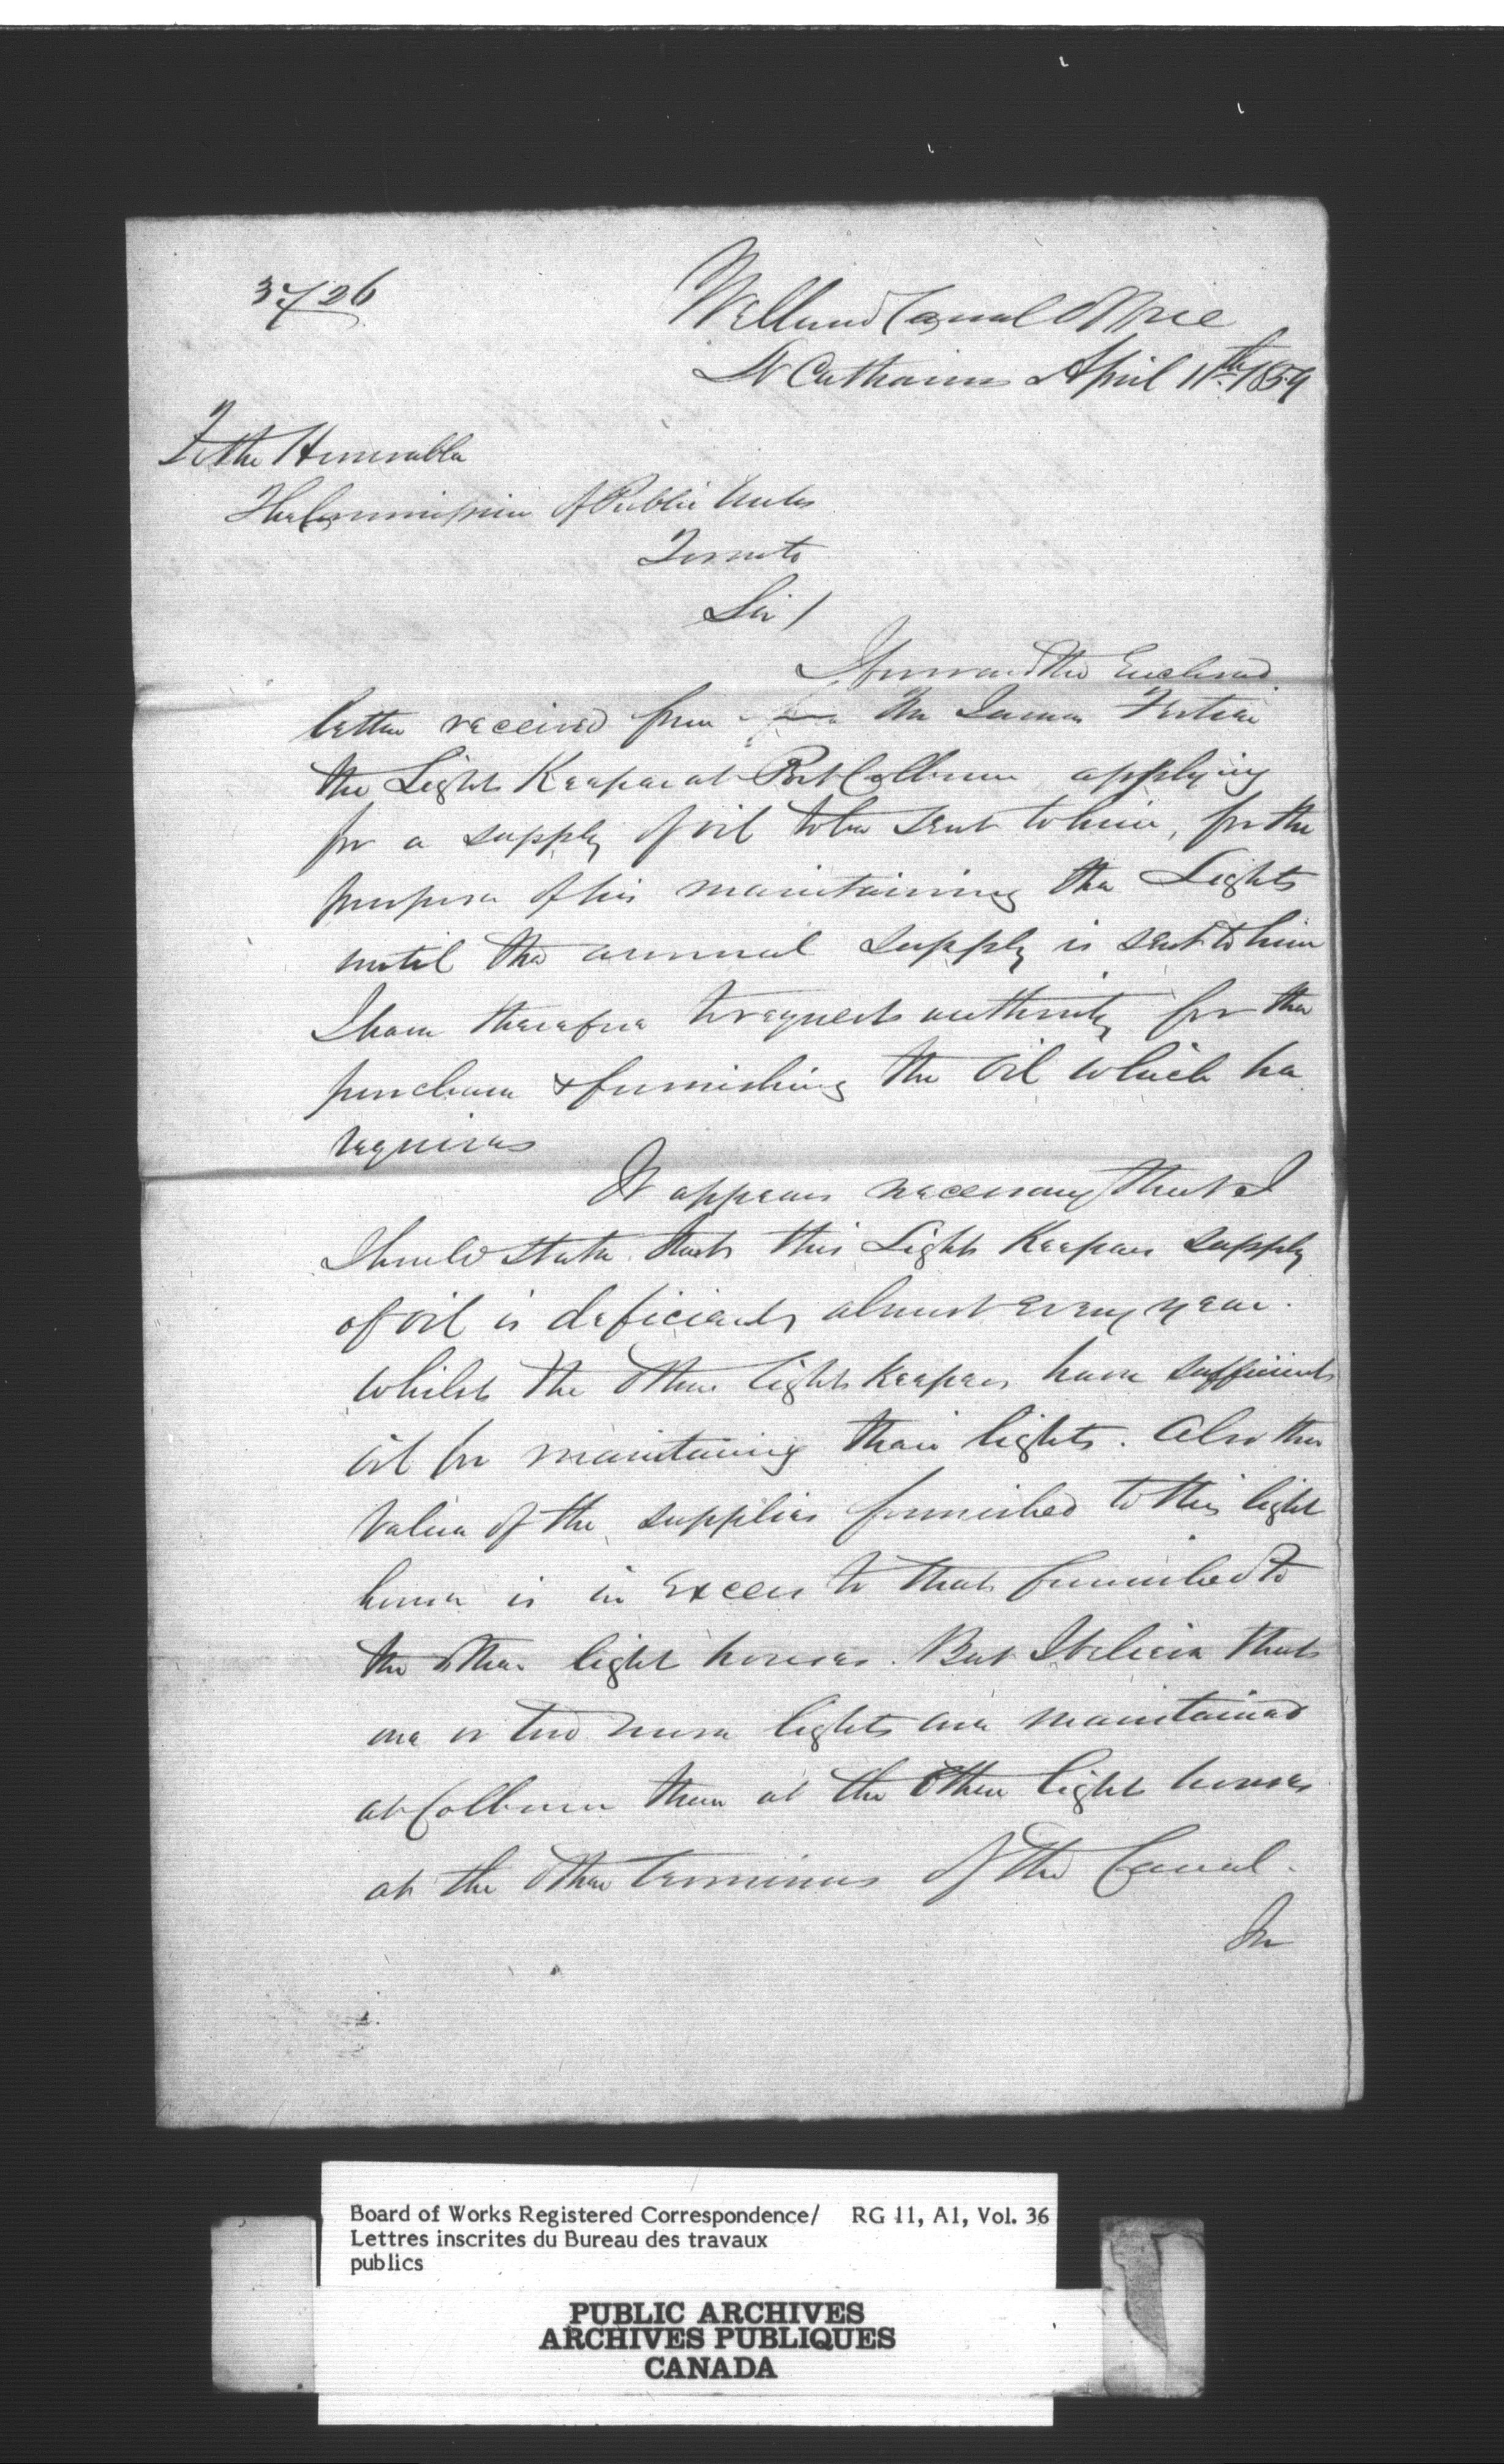 37726
Welland Canal Office
St Catharines April 11th 1859
To the Honorable
The Commissioner of Public Works
Toronto
Sir /
I forward the Enclosed
letter received from Mr James
the Light Keeper at Port Colborne applying
for a supply of oil to be sent to him, for the
purpose of his maintaining the Lights
until the annual supply is sent to him
I have therefore to request authority for the
purchase & furnishing the oil which he
requires
It appears necessary that I
Should state that this Light Keepers supply
of oil is deficient almost every year.
whilst the other light keepers have sufficient
oil for maintaining their lights. Also the
value of the supplies furnished to this light
house is in Excess to that furnished to
the other light houses. But I believe that
one or two more lights are maintained
at Colborne than at the other light houses
at the other terminus of the Canal.
In
Board of Works Registered Correspondence/ RG 11, A1, Vol. 36
Lettres inscrites du Bureau des travaux
publics
PUBLIC ARCHIVES
ARCHIVES PUBLIQUES
CANADA